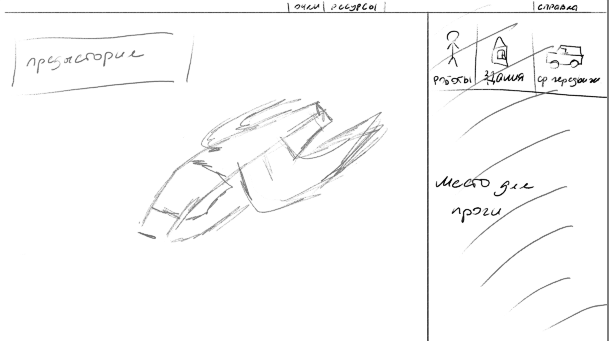 очки | ресурсы | справка
предыстория
роботы здания ср передвиж
место для
проги